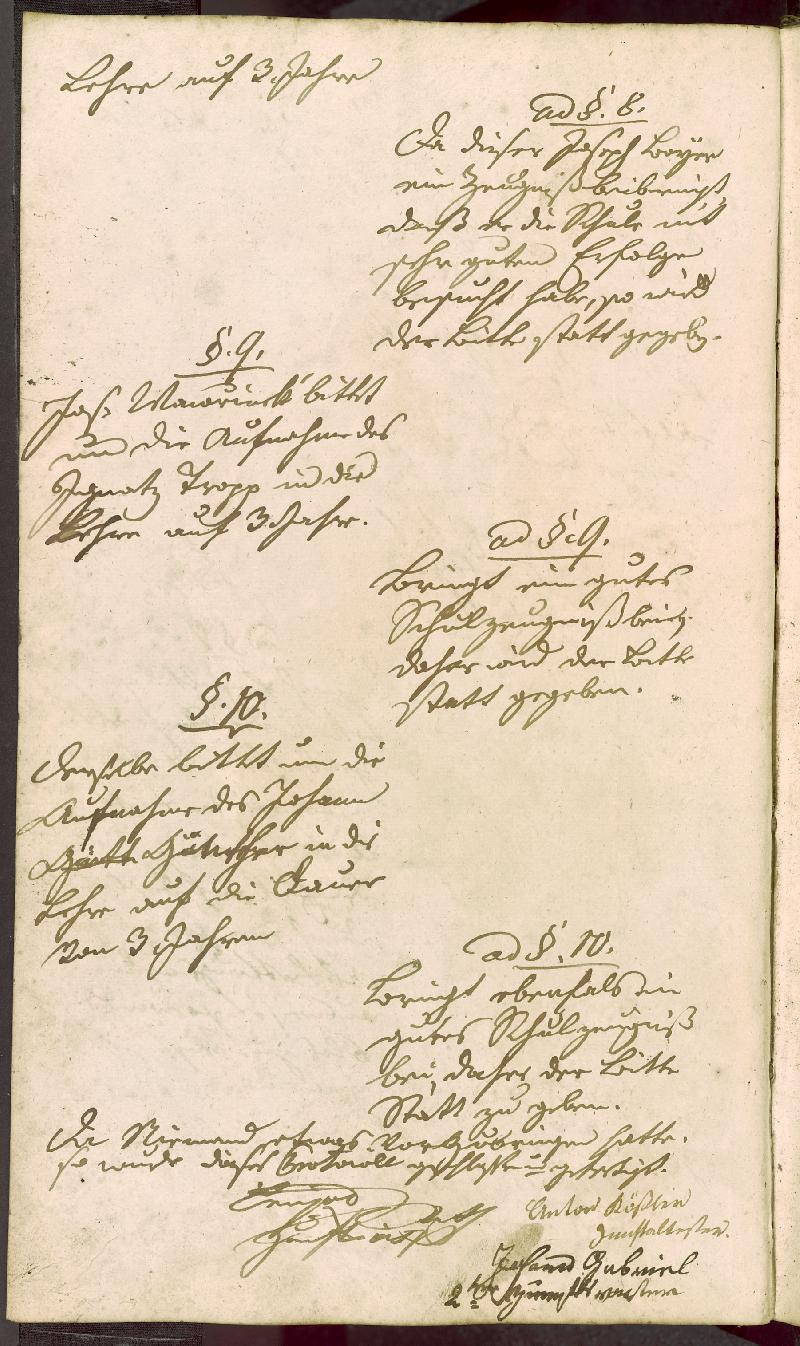 Lehre auf 3 Jahre
ad §. 8.
Da dieser Joseph Beyer
ein Zeugniß beibringt,
daß er die Schule mit
sehr guten Erfolge
besucht habe, so wird
der Bitte statt gegeben.
§. 9.
Jos. bittet
um die Aufnahme des
Ignatz Tropp in die
Lehre auf 3 Jahr.
ad §. 9.
Bringt ein gutes
Schulzeugniß bei,
daher wird der Bitte
statt gegeben.
§. 10.
Derselbe bittet um die
Aufnahme des Johann
in die
Lehre auf die Dauer
von 3 Jahren
ad §. 10.
Bringt ebenfals ein
gutes Schulzeugniß
bei, daher der Bitte
Statt zu geben.
Da Niemand etwas Vorzubringen hatte,
so wurde dieses Protocoll geschlossen und gefertigt.
Anton Rößler
Zunftältester.
Johann Gabriel
2ter